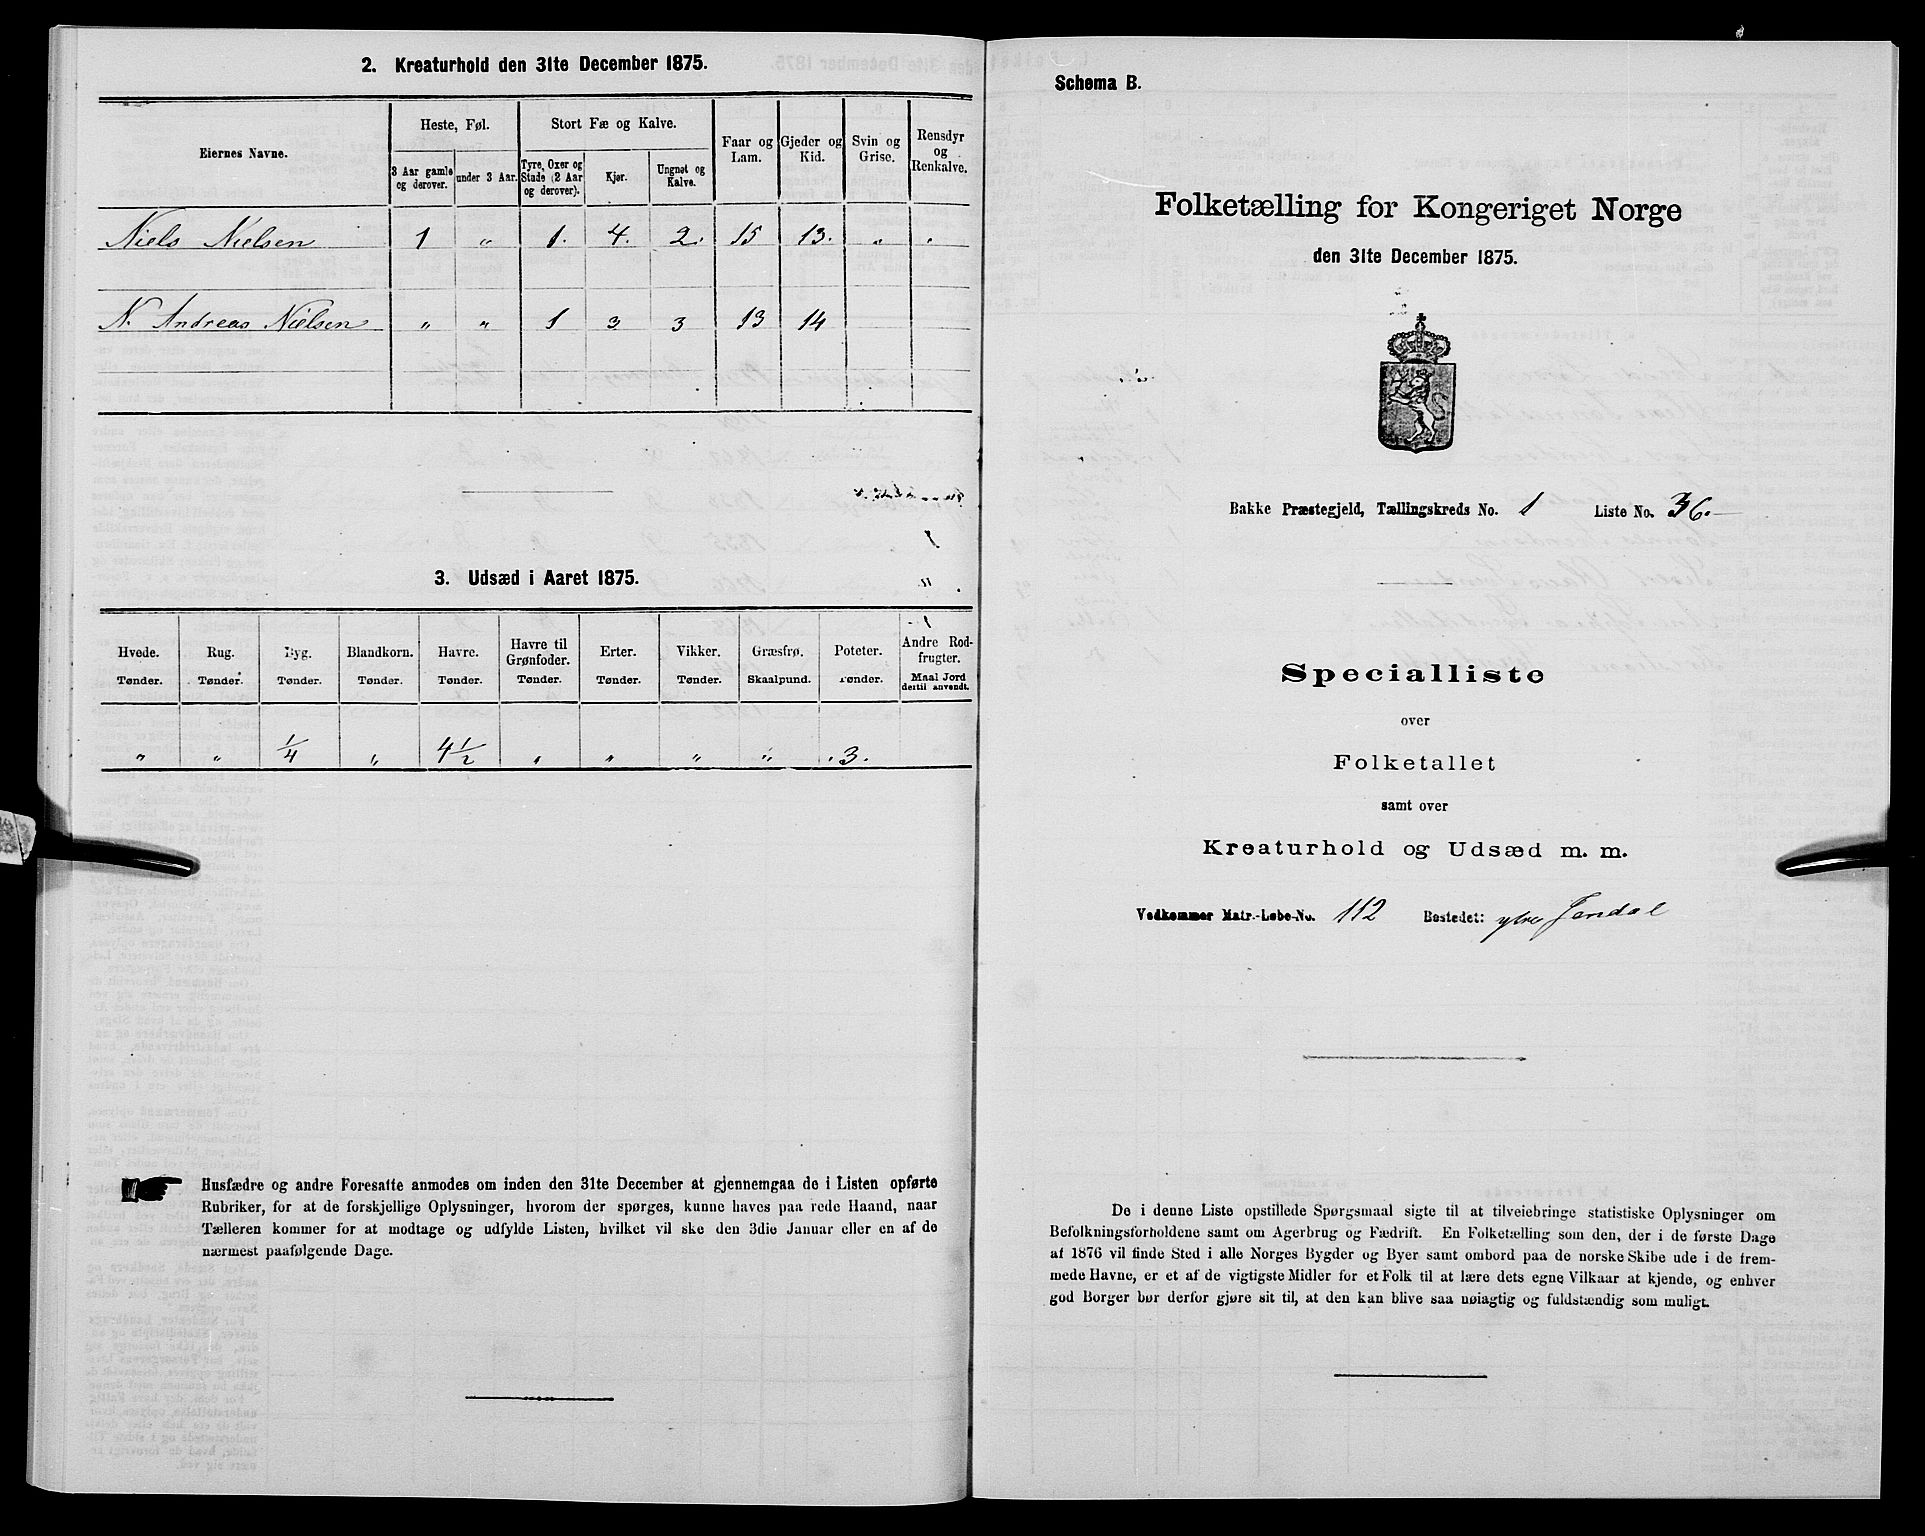 2. Kreaturhold den 31te December 1875.
Eiernes Navne.
Heste, Føl.
Stort Fæ og Kalve.
Faar og Lam.
Gjeder og Kid.
Svin og Grise.
Rensdyr og Renkalve.
3 Aar gamle og derover.
under 3 Aar.
Tyre, Oxer og Stude (2 Aar og derover).
Kjør.
Ungnøt og Kalve.
Niels Nielsen 1 „ 1. 4. 2. 15 13. „ .
N. Andreas Nielsen „ „ 1 3 3 13 14
3. Udsæd i Aaret 1875.
Hvede. Rug. Byg. Blandkorn. Havre. Havre til Grønfoder. Erter. Vikker. Græsfrø. Poteter. Andre Rodfrugter.
Tønder. Tønder. Tønder. Tønder. Tønder. Tønder. Tønder. Tønder. Skaalpund. Tønder. Maal Jord dertil anvendt.
„ „ 1/4 „ 4 1/2 „ „ „ „ . 3.
Husfædre og andre Foresatte anmodes om inden den 31te December at gjennemgaa de i Listen opførte
Rubriker, for at de forskjellige Oplysninger, hvorom der spørges, kunne haves paa rede Haand, naar
Tælleren kommer for at modtage og udfylde Listen, hvilket vil ske den 3die Januar eller en af de
nærmest paafølgende Dage.
Schema B.
Folketælling for Kongeriget Norge
den 31te December 1875.
Bakke Præstegjeld, Tællingskreds No. 1 Liste No. 36.
Specialliste
over
Folketallet
samt over
Kreaturhold og Udsæd m. m.
Vedkommer Matr.-Løbe-No. 112 Bostedet: ytre Jendal
De i denne Liste opstillede Spørgsmaal sigte til at tilveiebringe statistiske Oplysninger om
Befolkningsforholdene samt om Agerbrug og Fædrift. En Folketælling som den, der i de første Dage
af 1876 vil finde Sted i alle Norges Bygder og Byer samt ombord paa de norske Skibe ude i de frem-
mede Havne, er et af de vigtigste Midler for et Folk til at lære dets egne Vilkaar at kjende, og enhver
god Borger bør derfor gjøre sit til, at den kan blive saa nøiagtig og fuldstændig som muligt.